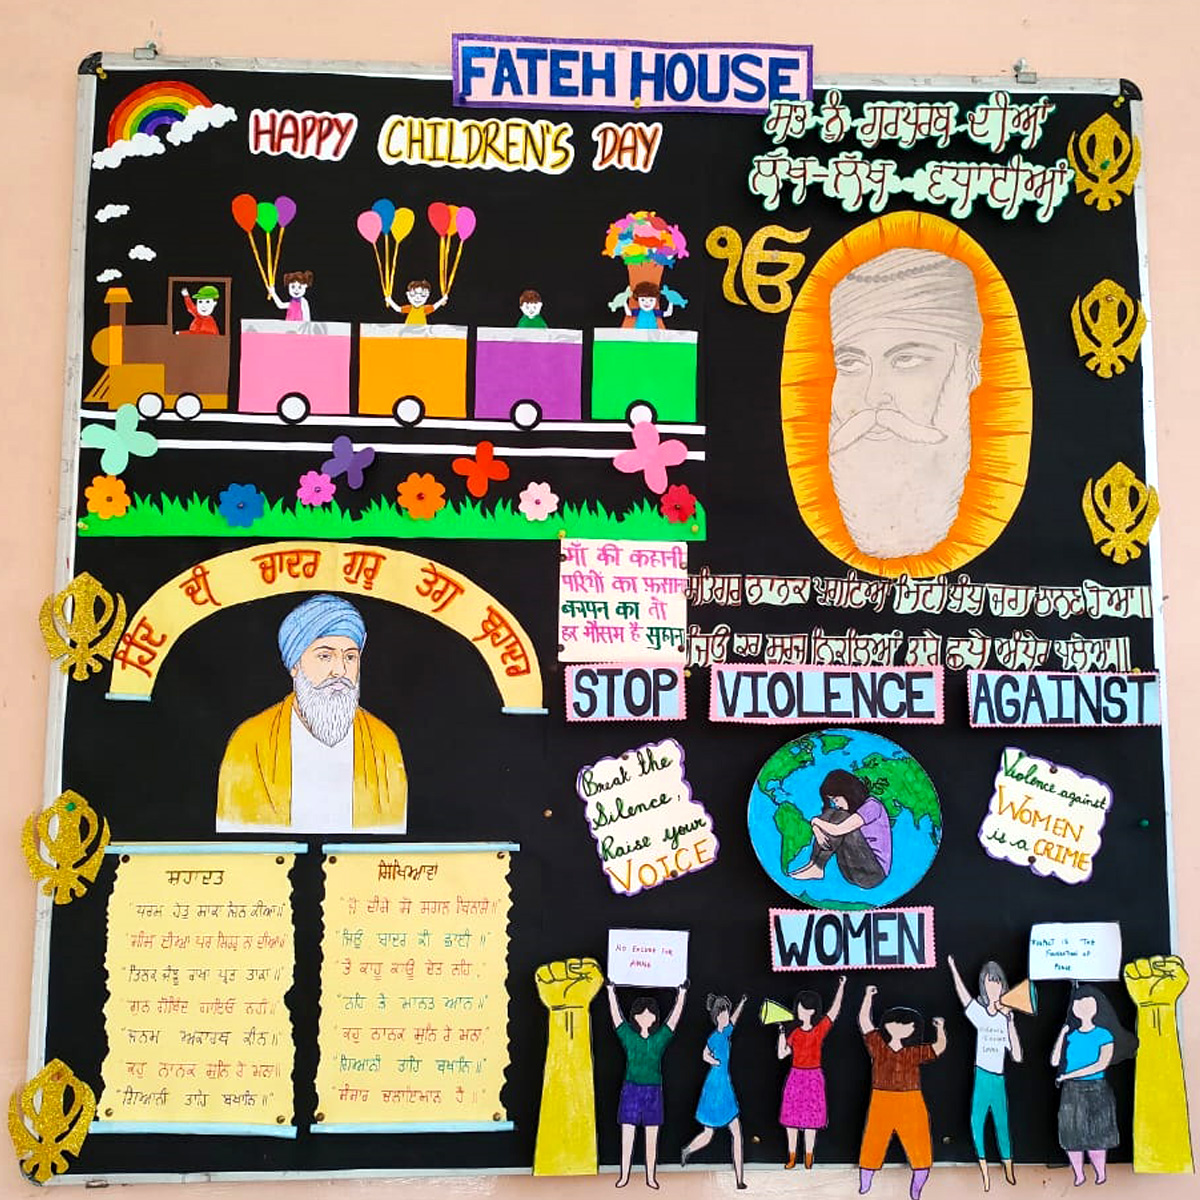 FATEH HOUSE
HAPPY CHILDREN'S DAY
ਸਭ ਨੂੰ ਗੁਰਪੁਰਬ ਦੀਆਂ
ਲੱਖ-ਲੱਖ ਵਧਾਈਆਂ
ੴ
ਹਿੰਦ ਦੀ ਚਾਦਰ ਗੁਰੂ ਤੇਗ ਬਹਾਦਰ
माँ की कहानी
परियों का फ़साना
बचपन का तो
हर मौसम है सुहाना
ਸਤਿਗੁਰ ਨਾਨਕ ਪ੍ਰਗਟਿਆ ਮਿਟੀ ਧੁੰਧ ਜਗ ਚਾਨਣ ਹੋਆ॥
ਜਿਉ ਕਰ ਸੂਰਜ ਨਿਕਲਿਆ ਤਾਰੇ ਛਪੇ ਅੰਧੇਰ ਪਲੋਆ॥
STOP VIOLENCE AGAINST
Break the
Silence,
Raise your
VOICE
Violence against
WOMEN
is a CRIME
WOMEN
NO EXCUSE FOR
RESPECT IS THE
FOUNDATION OF
ਸ਼ਹਾਦਤ
"ਧਰਮ ਹੇਤ ਸਾਕਾ ਜਿਨ ਕੀਆ॥
"ਸੀਸ ਦੀਆ ਪਰ ਸਿਰੁ ਨ ਦੀਆ॥
"ਤਿਲਕ ਜੰਞੂ ਰਾਖਾ ਪ੍ਰਭ ਤਾਕਾ॥
"ਗੁਨ ਗੋਬਿੰਦ ਗਾਇਓ ਨਹੀਂ॥
ਜਨਮ ਅਕਾਰਥ ਕੀਨ॥
ਕਹੁ ਨਾਨਕ ਸੁਨਿ ਰੇ ਮਨਾ॥
"ਗਿਆਨੀ ਤਾਹਿ ਬਖਾਨਿ॥"
ਸਿੱਖਿਆਵਾਂ
"ਜੋ ਦੀਸੈ ਸੋ ਸਗਲ ਬਿਨਾਸੈ॥
"ਜਿਉਂ ਬਾਦਰ ਕੀ ਛਾਈ॥"
"ਭੈ ਕਾਹੂ ਕਾਉ ਦੇਤ ਨਹਿ,
"ਨਹਿ ਭੈ ਮਾਨਤ ਆਨ॥
"ਕਹੁ ਨਾਨਕ ਸੁਨਿ ਰੇ ਮਨਾ,
"ਗਿਆਨੀ ਤਾਹਿ ਬਖਾਨਿ॥"
"ਸੰਸਾਰ ਚਲਾਇਮਾਨ ਹੈ॥"